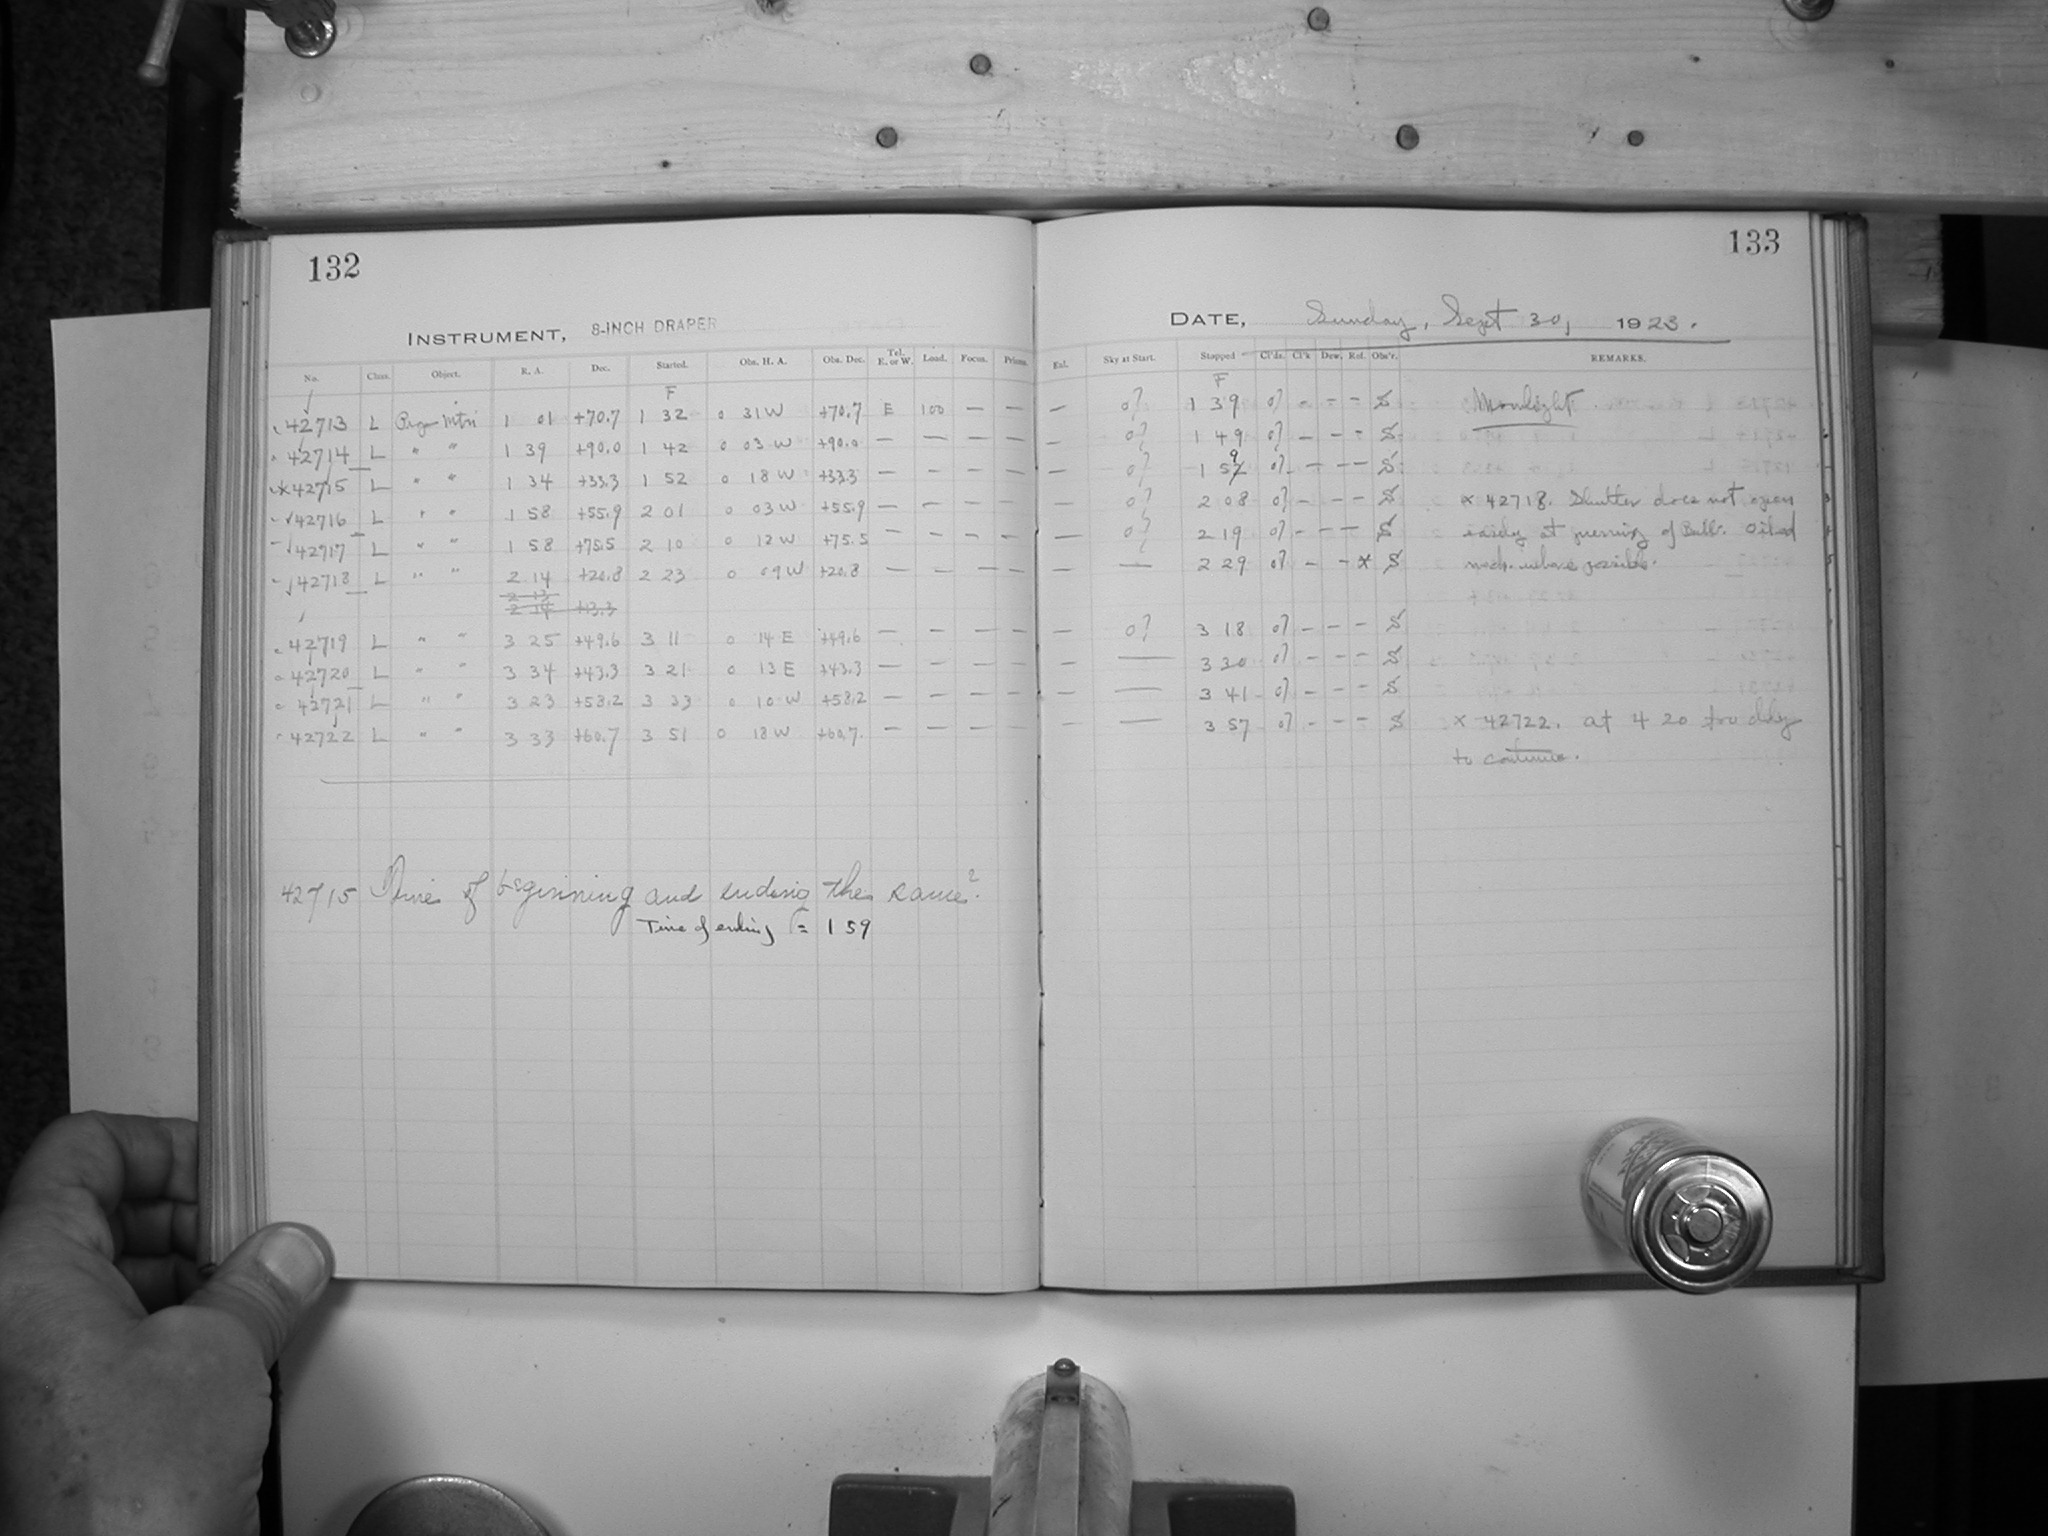 132
INSTRUMENT, 8-INCH DRAPER
No. Class. Object. R. A. Dec. Started. Obs. H. A. Obs. Dec. Tel. E. or W. Load. Focus. Prisms.
F
42713 L 1 01 +70.7 1 32 0 31 W +70.7 E 100 — —
42714 L " " 1 39 +90.0 1 42 0 03 W +90.0 — — — —
x 42715 L " " 1 34 +33.3 1 52 0 18 W +33.3
42716 L " " 1 58 +55.9 2 01 0 03 W +55.9 — — — —
42717 L " " 1 58 +75.5 2 10 0 12 W +75.5 — — — —
42718 L " " 2 14 +20.8 2 23 0 09 W +20.8 — — — —
2 13
2 14 +13.3
42719 L " " 3 25 +49.6 3 11 0 14 E +49.6 — — — —
42720 L " " 3 34 +43.3 3 21 0 13 E +43.3 — — — —
42721 L " " 3 23 +58.2 3 33 0 10 W +58.2 — — — —
42722 L " " 3 33 +60.7 3 51 0 18 W +60.7 — — — —
42715 Times of beginning and ending the same?
Time of ending F = 1 59
133
DATE, Sunday, Sept 30, 1923.
Exl. Sky at Start. Stopped Cl'ds. Cl'k Dew. Rof. Obs'r. REMARKS.
F
— o? 1 39 o? - - - S Moonlight.
— o? 1 49 o? - - - S
— o? 1 59 o? - - - S
— o? 2 08 o? - - - S x 42718. Shutter does not open
— o? 2 19 o? - - - S easily at of Bulb. Oiled
— — 2 29 o? - - x S mech. where possible.
— o? 3 18 o? - - - S
— — 3 30 o? - - - S
— — 3 41 o? - - - S
— — 3 57 o? - - - S x 42722. at 4 20 too cldy
to continue.